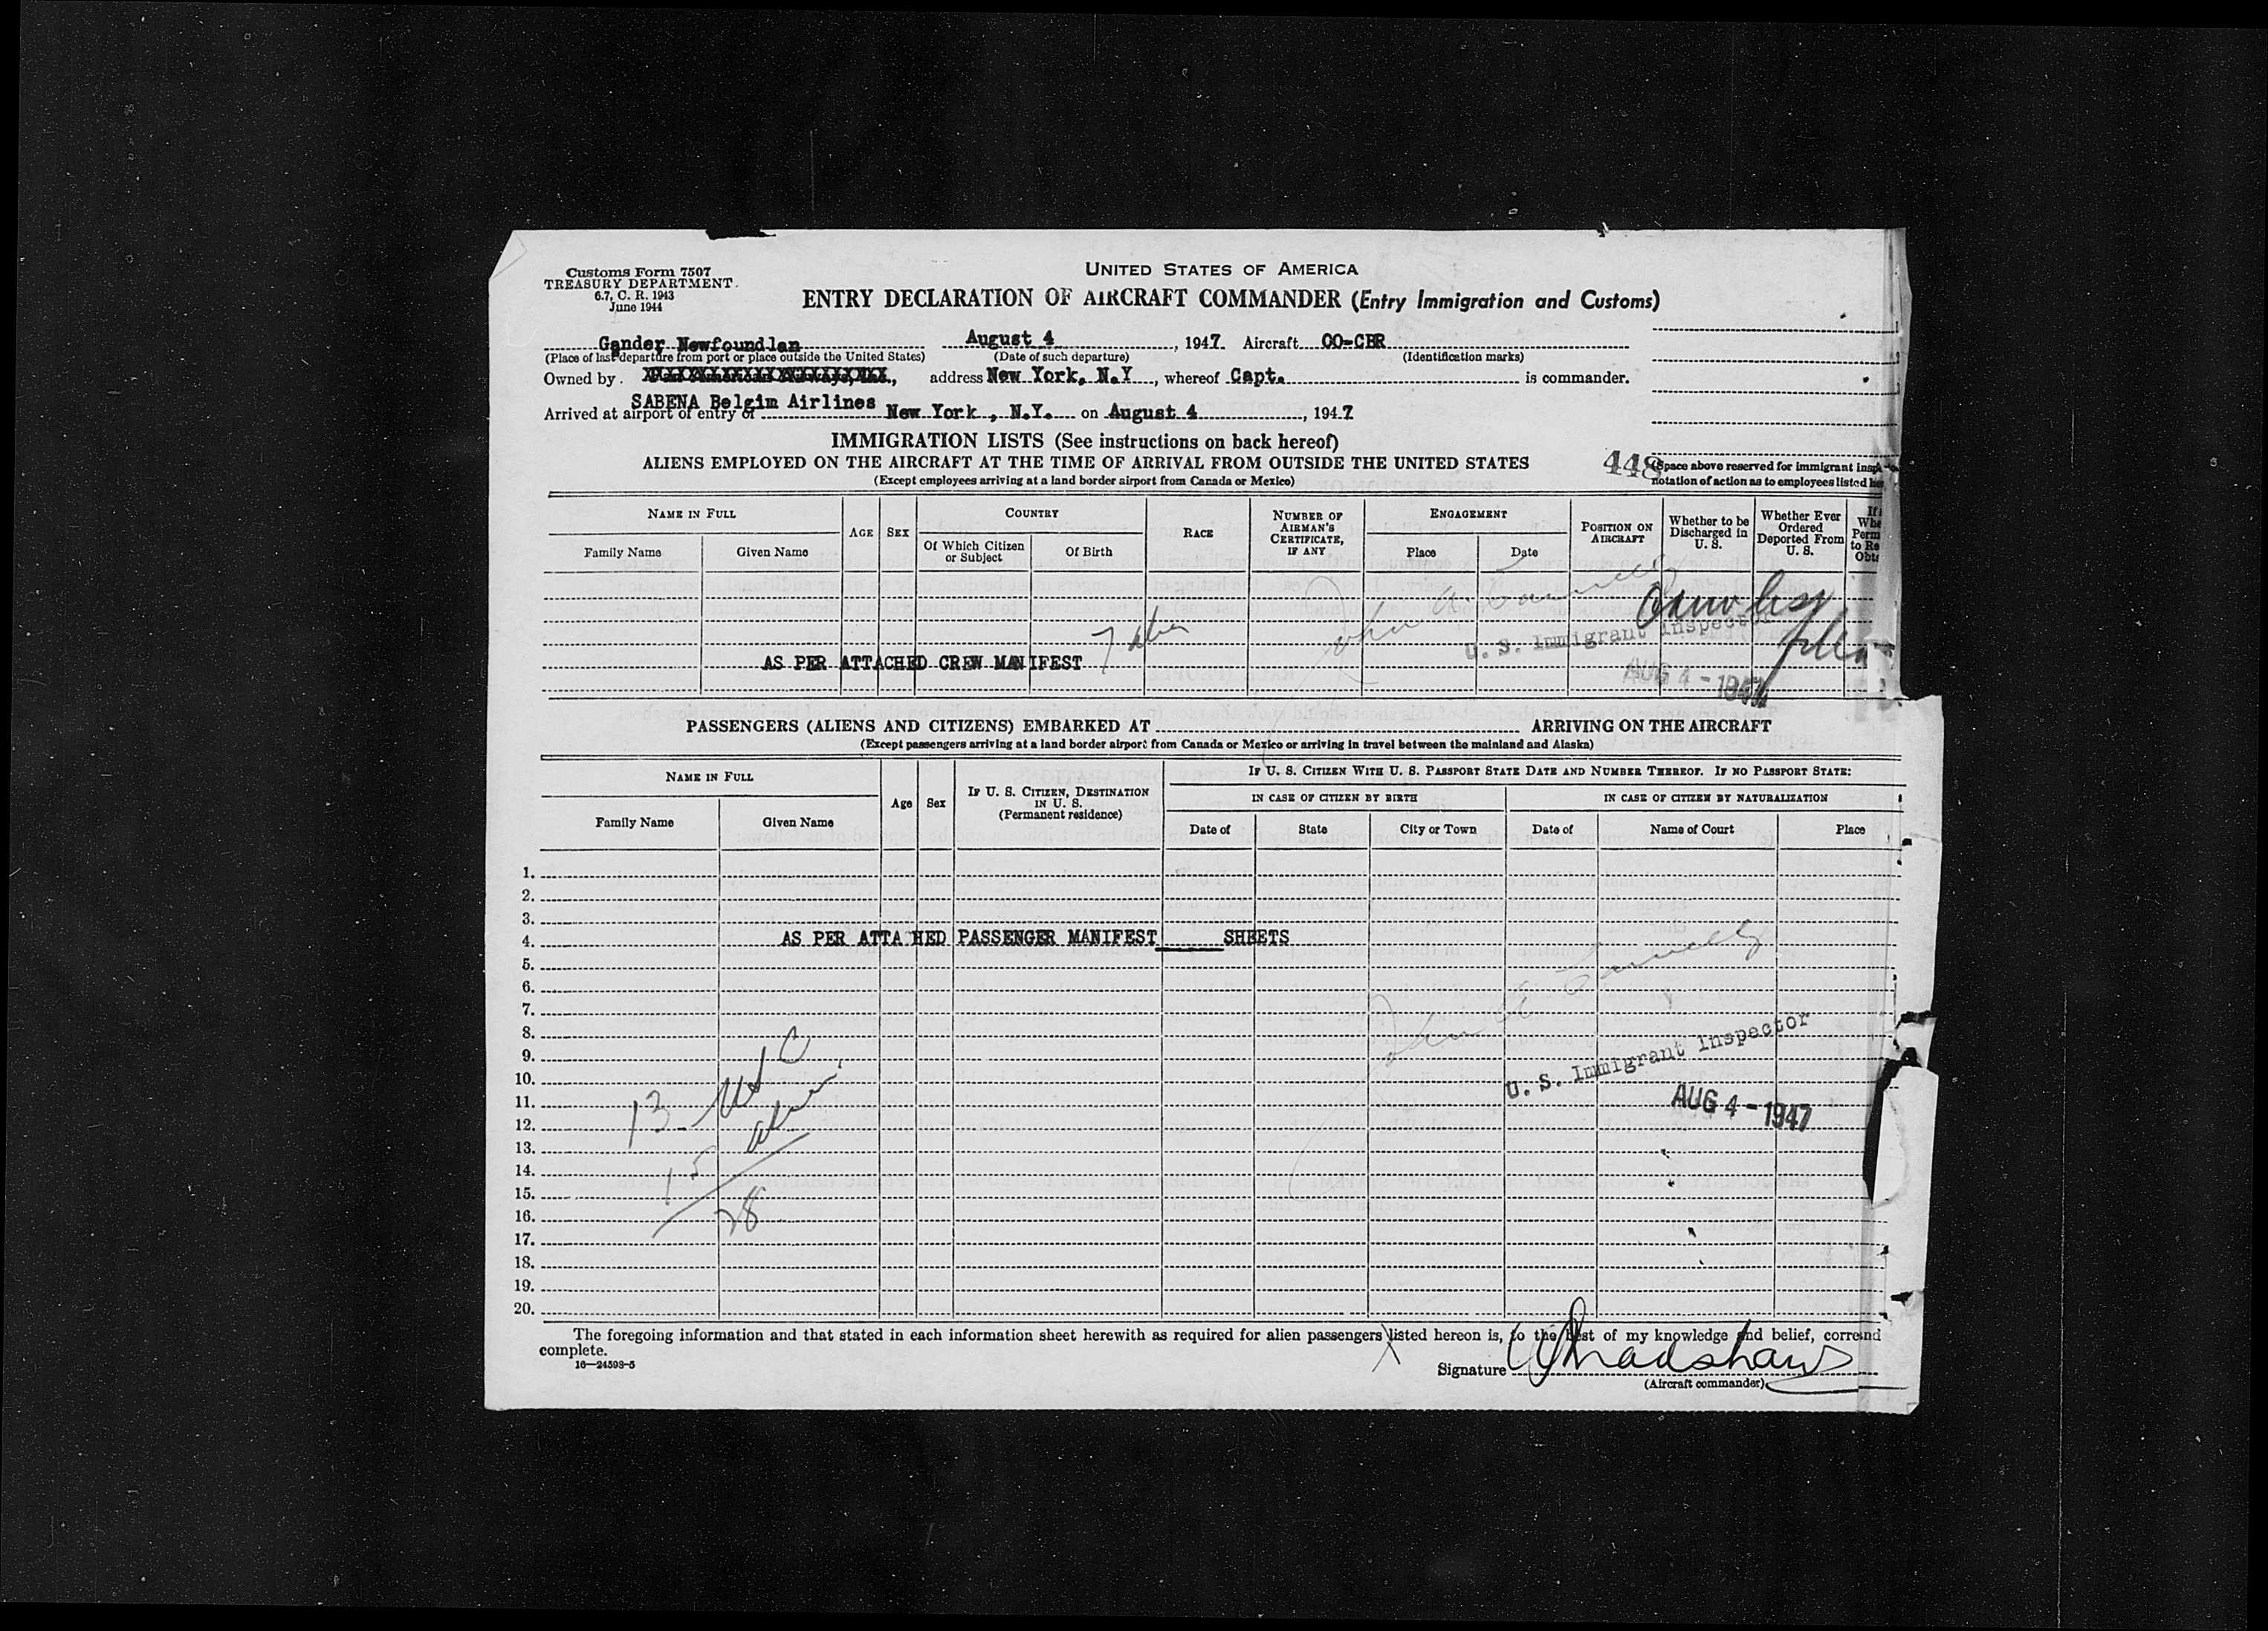 Customs Form 7507
TREASURY DEPARTMENT.
6.7, C. R. 1943
June 1944
UNITED STATES OF AMERICA
ENTRY DECLARATION OF AIRCRAFT COMMANDER (Entry Immigration and Customs)
Gander Newfoundlan August 4, 1947 Aircraft OO-CBR
(Place of last departure from port or place outside the United States) (Date of such departure) (Identification marks)
Owned by address New York, N.Y, whereof Capt. is commander.
SABENA Belgim Airlines
Arrived at airport of entry of New York, N.Y. on August 4, 1947
IMMIGRATION LISTS (See instructions on back hereof)
ALIENS EMPLOYED ON THE AIRCRAFT AT THE TIME OF ARRIVAL FROM OUTSIDE THE UNITED STATES
(Except employees arriving at a land border airport from Canada or Mexico)
448
(Space above reserved for immigrant
notation of action as to employees listed
NAME IN FULL AGE SEX COUNTRY RACE NUMBER OF AIRMAN'S CERTIFICATE, IF ANY ENGAGEMENT POSITION ON AIRCRAFT Whether to be Discharged in U. S. Whether Ever Ordered Deported From U. S.
Family Name Given Name Of Which Citizen or Subject Of Birth Place Date
U. S. Immigrant Inspector
AS PER ATTACHED CREW MANIFEST
AUG 4 - 1947
PASSENGERS (ALIENS AND CITIZENS) EMBARKED AT ARRIVING ON THE AIRCRAFT
(Except passengers arriving at a land border airport from Canada or Mexico or arriving in travel between the mainland and Alaska)
NAME IN FULL Age Sex IF U. S. CITIZEN, DESTINATION IN U. S. (Permanent residence) IF U. S. CITIZEN WITH U. S. PASSPORT STATE DATE AND NUMBER THEREOF. IF NO PASSPORT STATE:
IN CASE OF CITIZEN BY BIRTH IN CASE OF CITIZEN BY NATURALIZATION
Family Name Given Name Date of State City or Town Date of Name of Court Place
1.
2.
3.
4. AS PER ATTA HED PASSENGER MANIFEST SHEETS
5.
6.
7.
8.
9.
10.
11.
12.
13.
14.
15.
16.
17.
18.
19.
20.
13 - US C
15 aliens
28
U. S. Immigrant Inspector
AUG 4 - 1947
The foregoing information and that stated in each information sheet herewith as required for alien passengers listed hereon is, to the best of my knowledge and belief,
complete.
16—24598-5
Signature Bradshaw
(Aircraft commander)